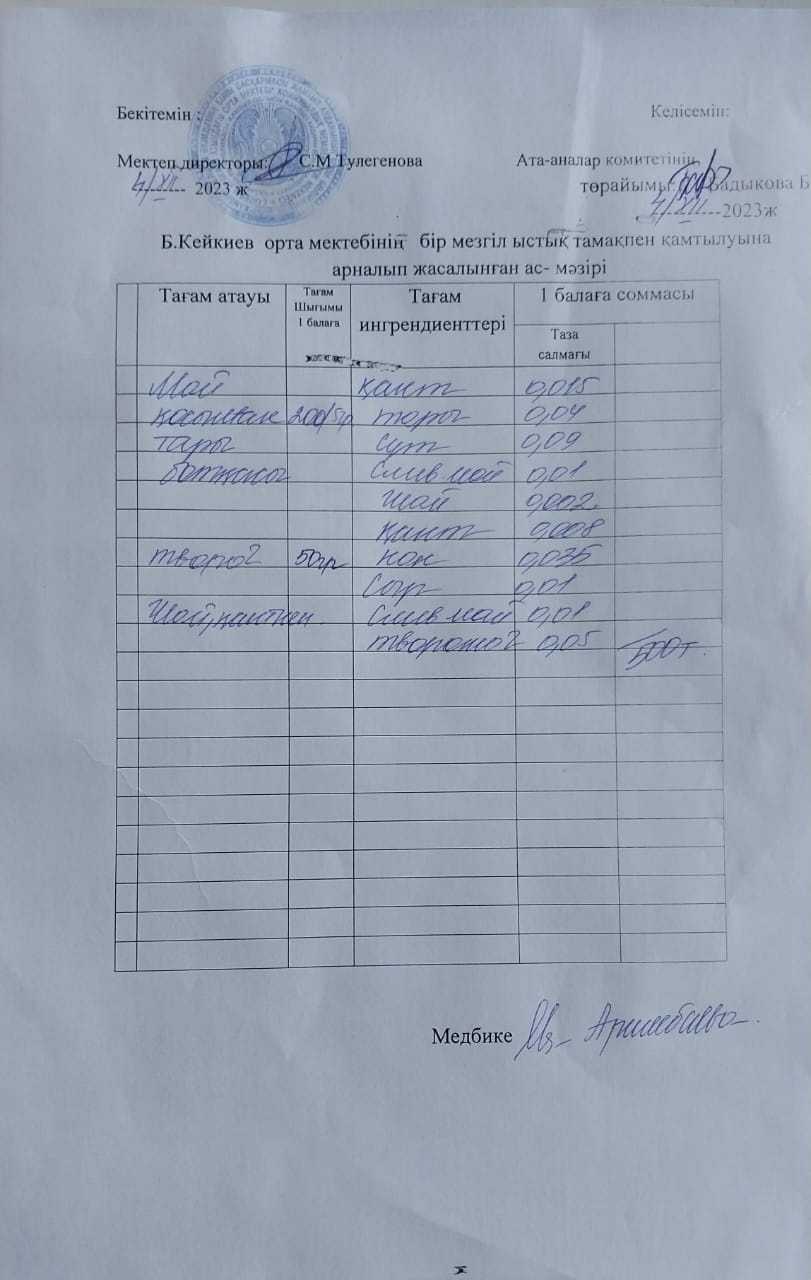 Бекітемін :
Келісемін:
Мектеп директоры: С.М Тулегенова
Ата-аналар комитетінің
4/XII 2023 ж
төрайымы: Бадыкова Б
4/XII---2023ж
Б.Кейкиев орта мектебінің бір мезгіл ыстық тамақпен қамтылуына
арналып жасалынған ас- мәзірі
Тағам атауы Тағам Шығымы 1 балаға Тағам ингрендиенттері 1 балаға соммасы
Таза салмағы
Май қант 0,015
қосылған 200/5гр тары 0,04
тары сүт 0,09
ботқасы Слив май 0,01
Шай 0,002
қант 0,008
творог 50гр нан 0,035
Сыр 0,01
Шай,қантпен. Слив май 0,01
творожог 0,05 500т.
Медбике